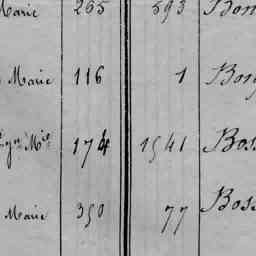 Marie 265 593
Marie 116 1
Mie 174 1541 Boss
Marie 350 77 Boss